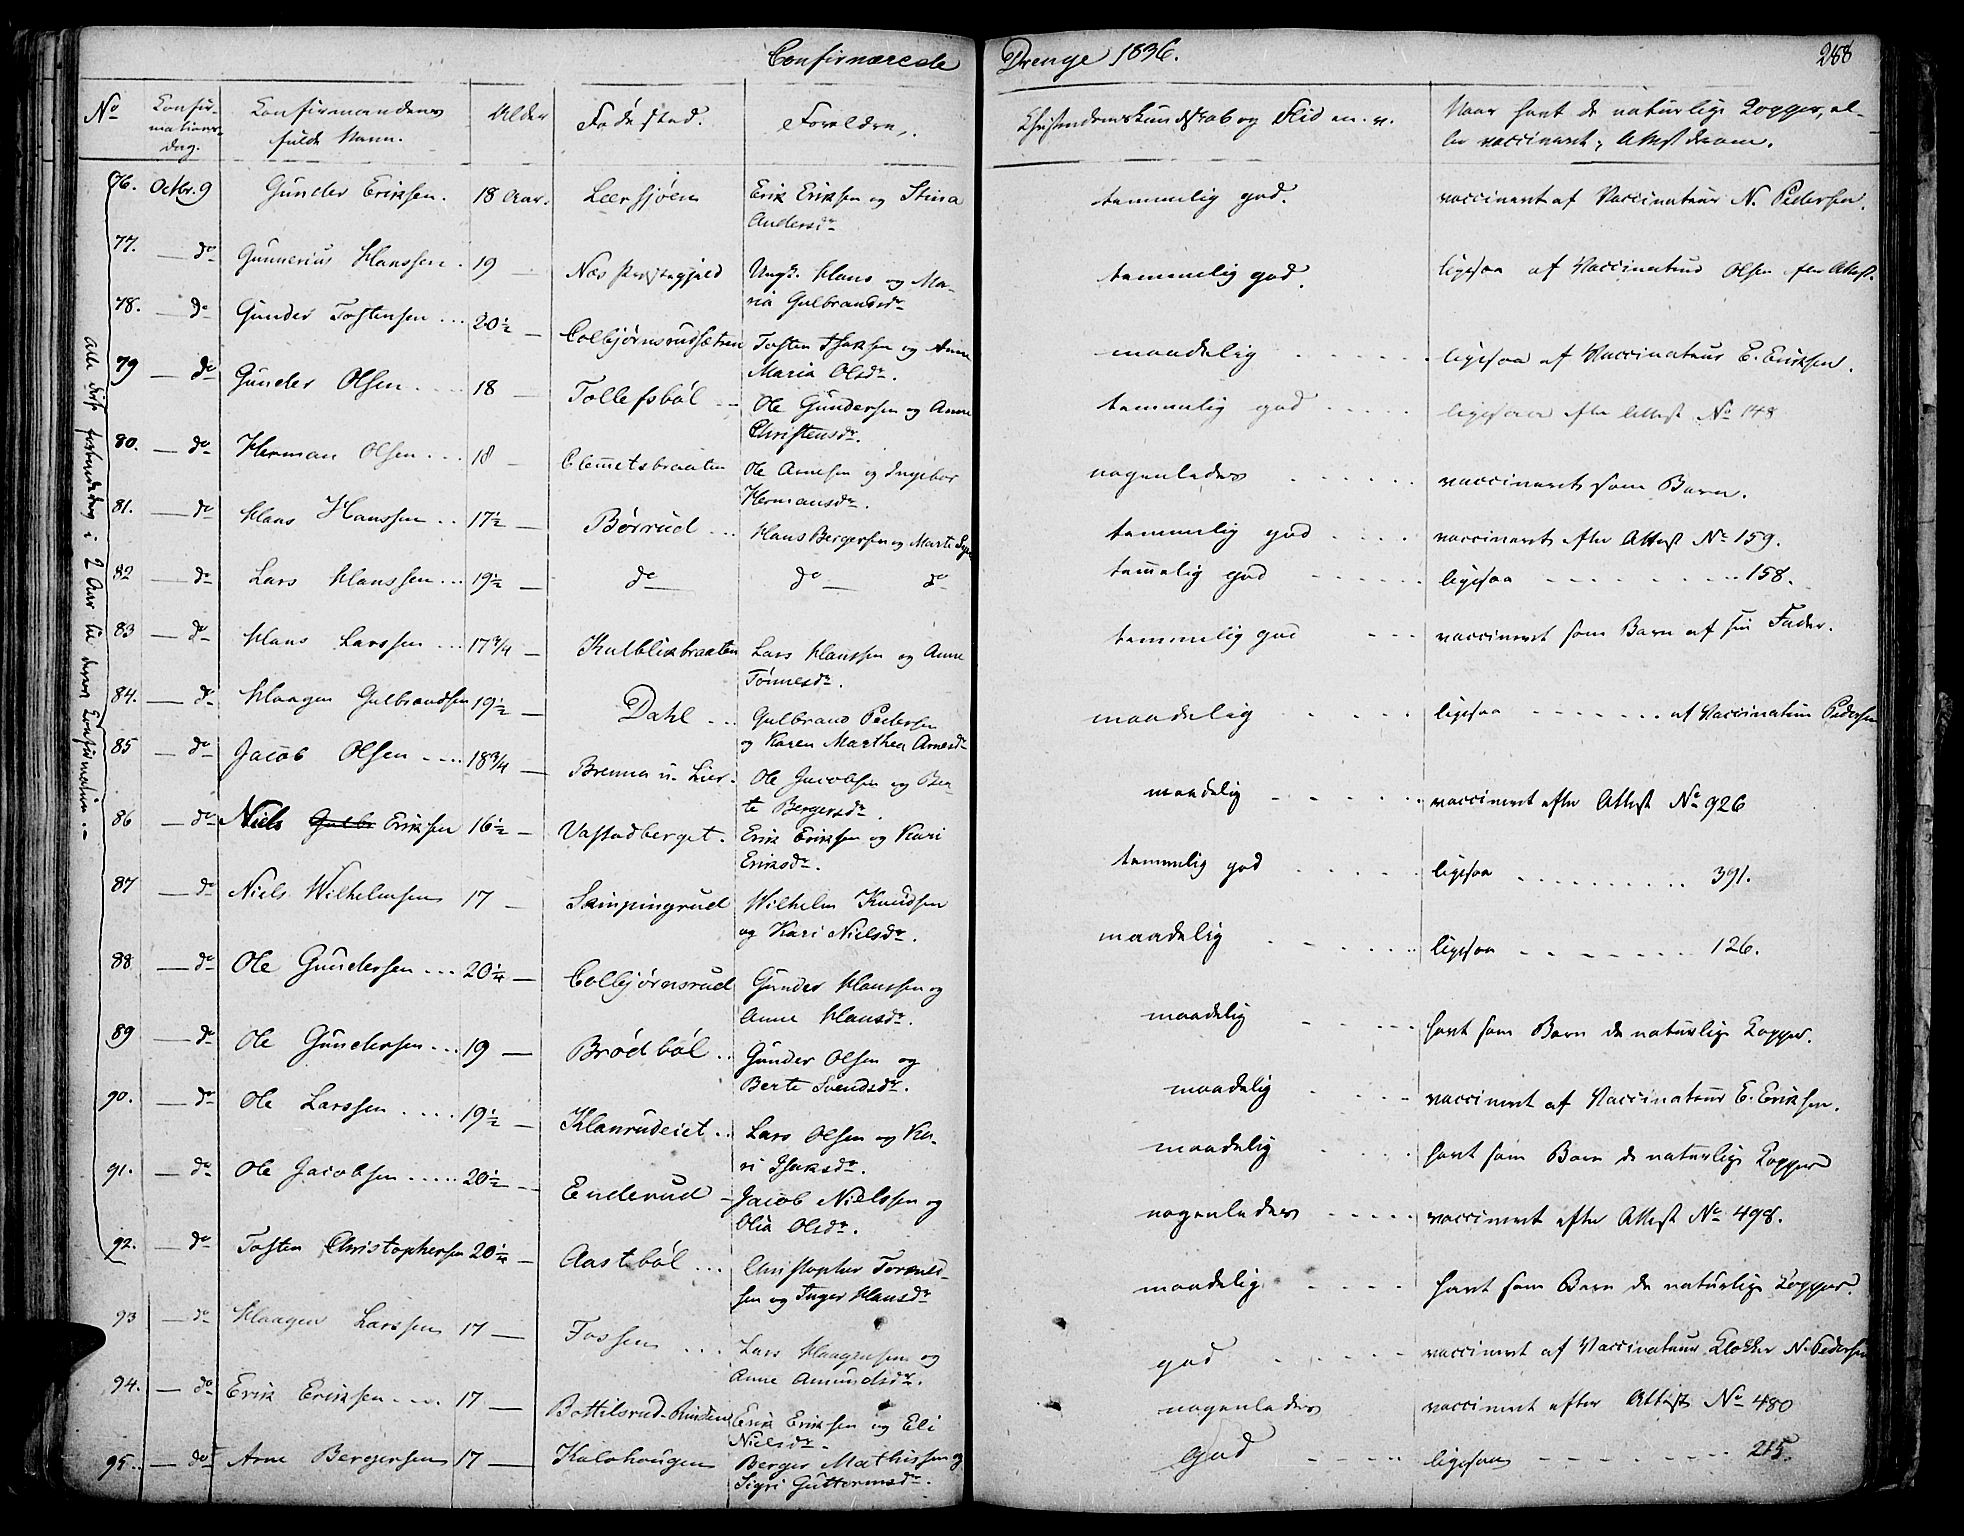 Confirmerede Drenge 1836. 288
No Confir- Confirmandens Alder Fødested. Forældre. Christendomskundskab og Flid m. v. Naar havt de naturlige Kopper, el-
mations- fulde Navn. ler vaccineret, Attest derom.
dag.
76. Octbr. 9 Gunder Eriksen. 18 Aar. Leersjøen Erik Eriksen og Stina temmelig god. vaccineret af Vaccinateur N. Pedersen.
Andersdr
77. — do Gunnerius Hanssen. 19 — Næs Præstegjeld Ungk. Hans og Ma- temmelig god. ligesaa af Vaccinateur Olsen efter Attest.
ria Gulbrandsdr
78. — do Gunder Tostensen ... 20½ — Colbjørnsrudsætren Tosten Isaksen og Anne maadelig ligesaa af Vaccinateur E. Eriksen.
Maria Olsdr.
79 — do Gunder Olsen 18 — Tollefsbøl Ole Gundersen og Anne temmelig god ligesaa efter Attest No 148
Christensdr.
80. — do Herman Olsen ... 18 — Clemetsbraaten Ole Arnesen og Ingebor nogenledes vaccineret som Barn.
Hermansdr.
81. — do Hans Hanssen .. 17½ — Børrud ... Hans Bergersen og Marte temmelig god vaccineret efter Attest No 159.
82 — do Lars Hanssen ... 19½ — do do — do temmelig god ligesaa 158.
83 — do Hans Larssen ... 17¾ — Kulblikbraaten Lars Hanssen og Anne temmelig god vaccineret som Barn af sin Fader.
Tønnesdr.
84. — do Haagen Gulbrandsen 19½ — Dahl ... Gulbrand Pedersen maadelig ligesaa af Vaccinateur Pedersen
og Karen Marthea Arnesdr
85 — do Jacob Olsen .... 18¾ — Brenna u. Lier. Ole Jacobsen og Ber- maadelig vaccineret efter Attest No 926
te Bergersdr.
86 — do Niels Gulbr Eriksen 16½ — Vastadberget. Erik Eriksen og Kari temmelig god ligesaa 391.
Eriksdr.
87 — do Niels Wilhelmsen 17 — Sæimpingrud Wilhelm Knudsen maadelig ligesaa 126.
og Kari Nielsdr.
88 — do Ole Gundersen ... 20¼ — Colbjørnsrud Gunder Hanssen og maadelig havt som Barn de naturlige Kopper.
Anne Hansdr.
89 — do Ole Gundersen ... 19 — Brødbøl .. Gunder Olsen og maadelig vaccineret af Vaccinateur E. Eriksen.
Berte Svendsdr.
90. — do Ole Larssen 19½ — Klanrudeiet .. Lars Olsen og Ka- maadelig havt som Barn de naturlige Kopper
ri Isaksdr.
91. — do Ole Jacobsen 20½ — Enderud — Jacob Nielssen og nogenledes vaccineret efter Attest No 498.
Olia Olsdr.
92. — do Tosten Christophersen 20¼ — Aastebøl ... Christopher maadelig havt som Barn de naturlige Kopper.
sen og Inger Hansdr
93 — do Haagen Larssen 17 — Fossen ... Lars Haagensen og god vaccineret af Vaccinateur Klokker N. Pedersen
Anne Amundsdr.
94. — do Erik Eriksen 17 — Bottilsrud Erik Eriksen og Eli nogenledes vaccineret efter Attest No 480
Nielsdr.
95. — do Arne Bergersen 17 — Kalvhougen Berger Mathissen og god ligesaa 215.
Sigri Guttormsdr.
alle disse forberedede i 2 Aar til deres Confirmation.